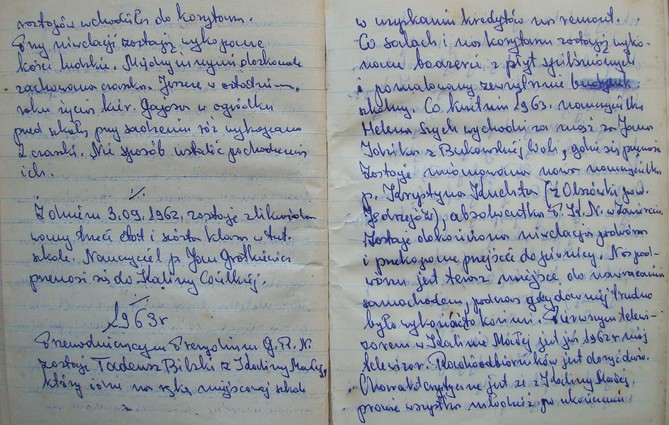 roztopów wchodziła do korytarza.
Przy niwelacji zostają wykopane
kości ludzkie. Między innymi doskonale
zachowana czaszka. Jeszcze w ostatnim
roku życia kier. Gajosa w ogródku
pod szkołą przy sadzeniu róż wykopano
2 czaszki. Nie sposób ustalić pochodzenia
ich.
Z dniem 3.09.1962, zostaje zlikwido-
wany trzeci etat i szósta klasa w tut.
szkole. Nauczyciel p. Jan
przenosi się do Kaliny
1963 r
Przewodniczącym Prezydium G.R.N.
zostaje Tadeusz Bilski z Idaliny Małej,
który idzie na rękę miejscowej szkole
w uzyskaniu kredytów na remont.
Co salach i na korytarzu zostają wyko-
nane z płyt spilśnionych
i pomalowany zewnętrznie budynek
szkolny. Co kwietniu 1963. nauczycielka
Helena wychodzi za mąż za Jana
z woli, gdzie się przenosi
Zostaje mianowana nowa nauczycielka
p. Krystyna (z Olszówki pow.
Jędrzejów), absolwentka S. N. w
Zostaje dokończona niwelacja podwórza
i przekopane przejście do piwnicy. Na pod-
wórzu jest teraz miejsce do nawracania
samochodem, podczas gdy dawniej trudno
było wykręcić końmi. Pierwszym telewi-
zorem w Idalinie Małej jest już 1962 r mój
telewizor. Radioodbiorników jest dosyć dużo.
Charakterystyczne jest że z Idaliny Małej
prawie wszystka młodzież po ukończeniu